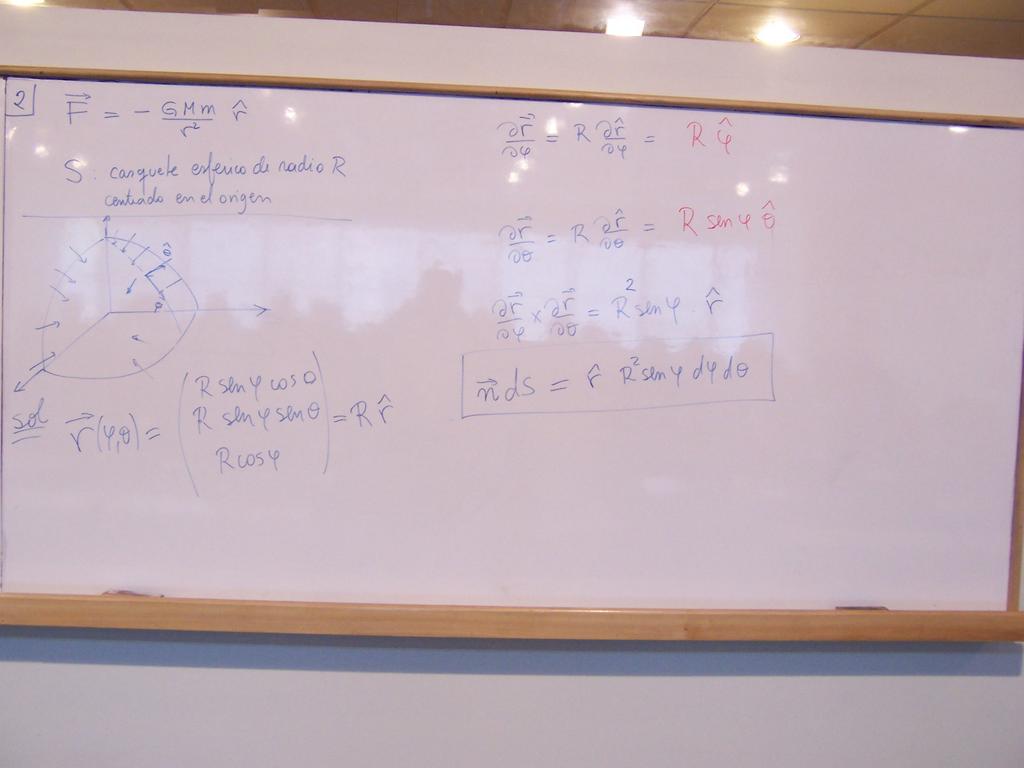 2
F⃗ = - GMm/r² r̂
S: casquete esférico de radio R
centrado en el origen
θ̂
φ
sol
r⃗(φ,θ) = (R senφ cosθ
R senφ senθ
R cosφ) = R r̂
∂r⃗/∂φ = R ∂r̂/∂φ = R φ̂
∂r⃗/∂θ = R ∂r̂/∂θ = R senφ θ̂
∂r⃗/∂φ × ∂r⃗/∂θ = R² senφ · r̂
n⃗ ds = r̂ R² senφ dφ dθ